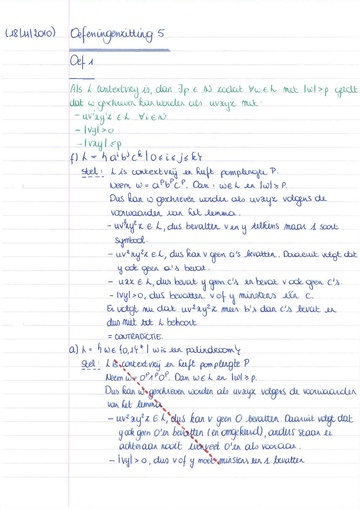 (18/11/2010) Oefeningenzitting 5
Oef 1
Als L contextvrij is, dan ∃p ∈ ℕ zodat ∀w∈L met |w|>p geldt
dat w geschreven kan worden als uvxyz met:
- uvⁱxyⁱz ∈ L ∀i∈ℕ
- |vy|>0
- |vxy|≤p
f) L = {aⁱbʲcᵏ | 0≤i≤j≤k}
Stel: L is contextvrij en heeft pomplengte P.
Neem w = aᵖbᵖcᵖ. Dan: w∈L en |w|≥p.
Dus kan w geschreven worden als uvxyz volgens de
voorwaarden van het lemma.
- uv²xy²z ∈ L, dus bevatten v en y telkens maar 1 soort
symbool.
- uv²xy²z ∈ L, dus kan v geen a's bevatten. Daaruit volgt dat
y ook geen a's bevat.
- uxz ∈ L, dus bevat y geen c's en bevat v ook geen c's.
- |vy|>0, dus bevatten v of y minstens één c.
Er volgt nu dat uv²xy²z meer b's dan c's bevat en
dus niet tot L behoort
= CONTRADICTIE.
a) L = {w∈{0,1}* | w is een palindroom}
Stel: L is contextvrij en heeft pomplengte P
Neem w = 0ᵖ1ᵖ0ᵖ. Dan w∈L en |w|≥p.
Dus kan w geschreven worden als uvxyz volgens de voorwaarden
van het lemma
- uv²xy²z ∈ L, dus kan v geen 0 bevatten. Daaruit volgt dat
y ook geen 0'en bevatten (en omgekeerd), anders staan er
achteraan nooit evenveel 0'en als vooraan.
- |vy|>0, dus v of y moet minstens een 1 bevatten